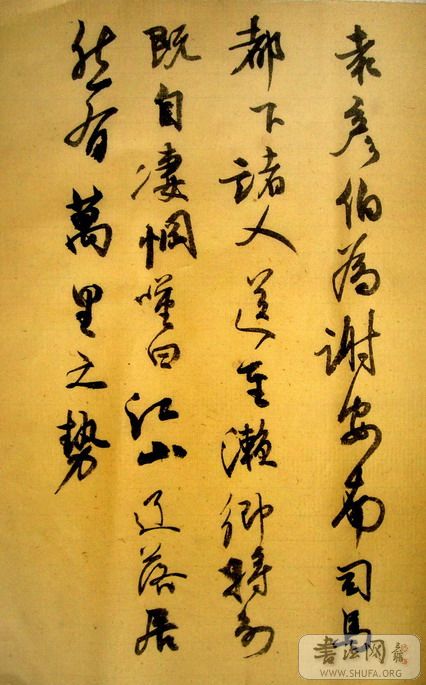 袁彦伯為謝安南司馬
都下諸人送至瀨鄉將別
既自凄惘嘆曰江山辽落居
然有萬里之勢
书法网
WWW.SHUFA.ORG